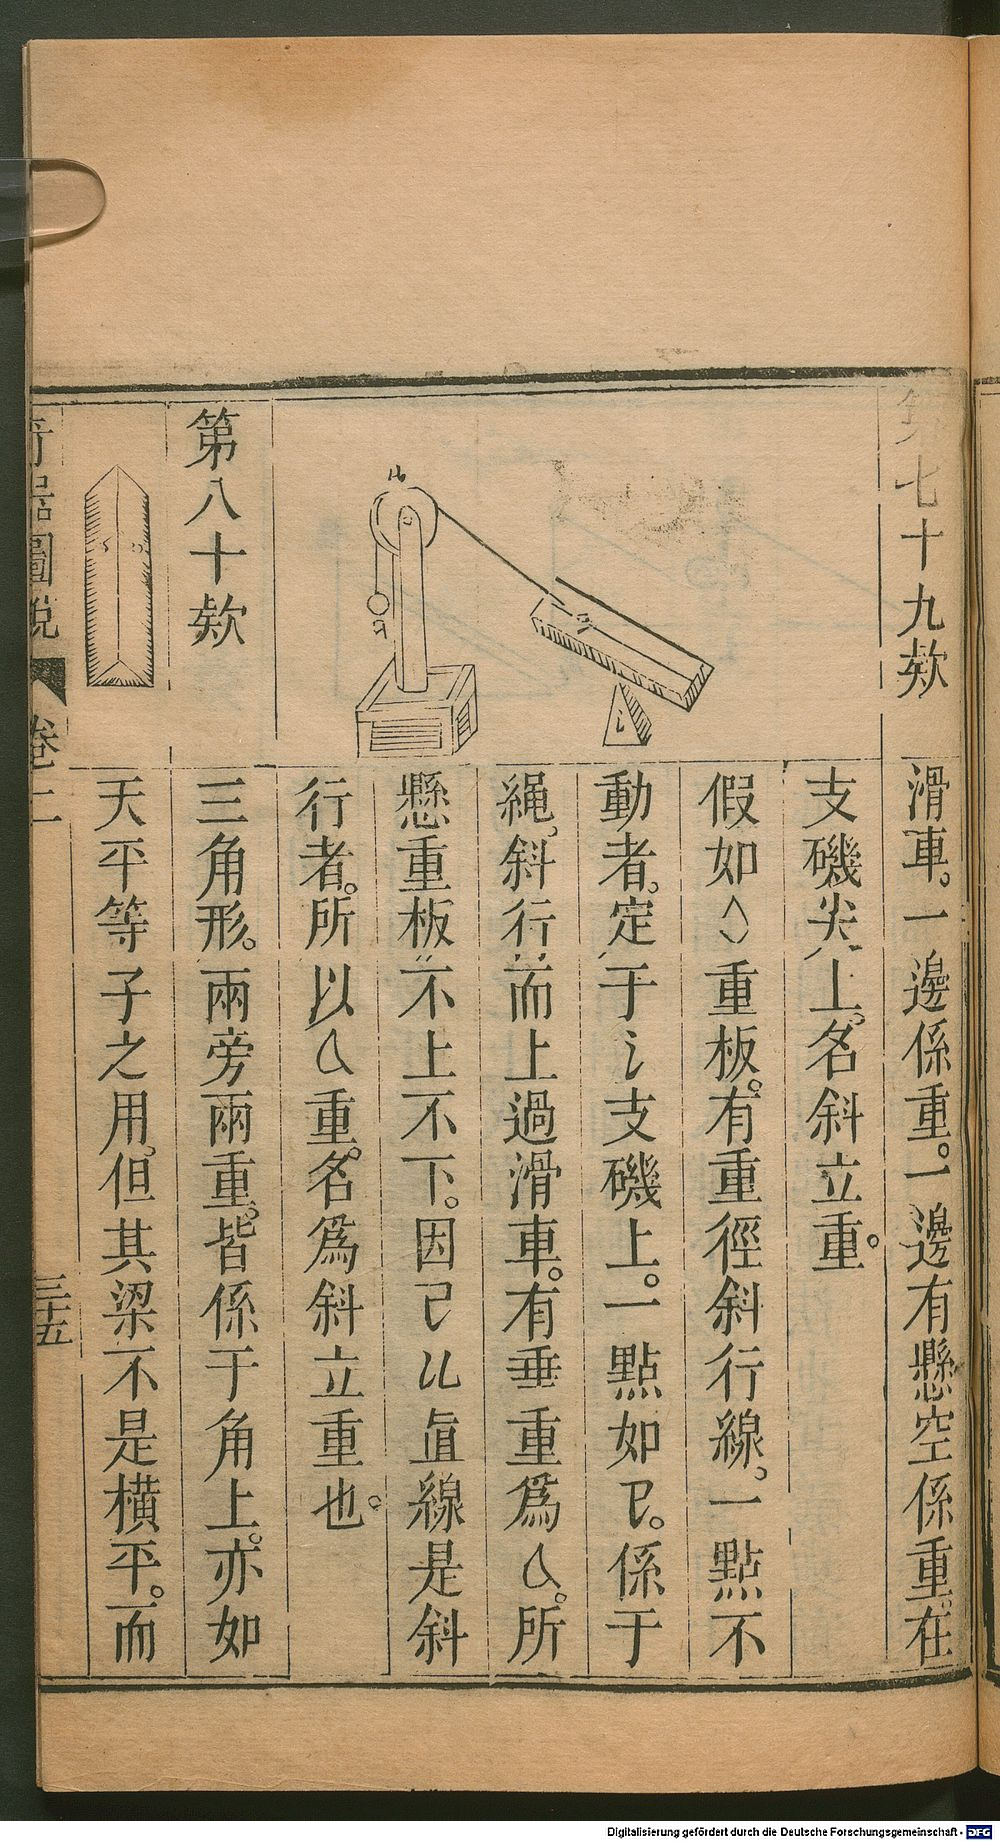 第七十九款
滑車。一邊係重。一邊有懸空係重。在
支磯尖上。名斜立重。
假如重板。有重徑斜行線。一點不
動者。定于氵支磯上。一點如㔾。係于
繩。斜行而上過滑車。有垂重爲厶。所
懸重板不上不下。因㔾𠃊直線是斜
行者。所以厶重。名爲斜立重也。
第八十款
三角形。兩旁兩重。皆係于角上。亦如
天平等子之用。但其梁不是横平。而
奇器圖說
卷二
三十五
Digitalisierung gefördert durch die Deutsche Forschungsgemeinschaft - DFG